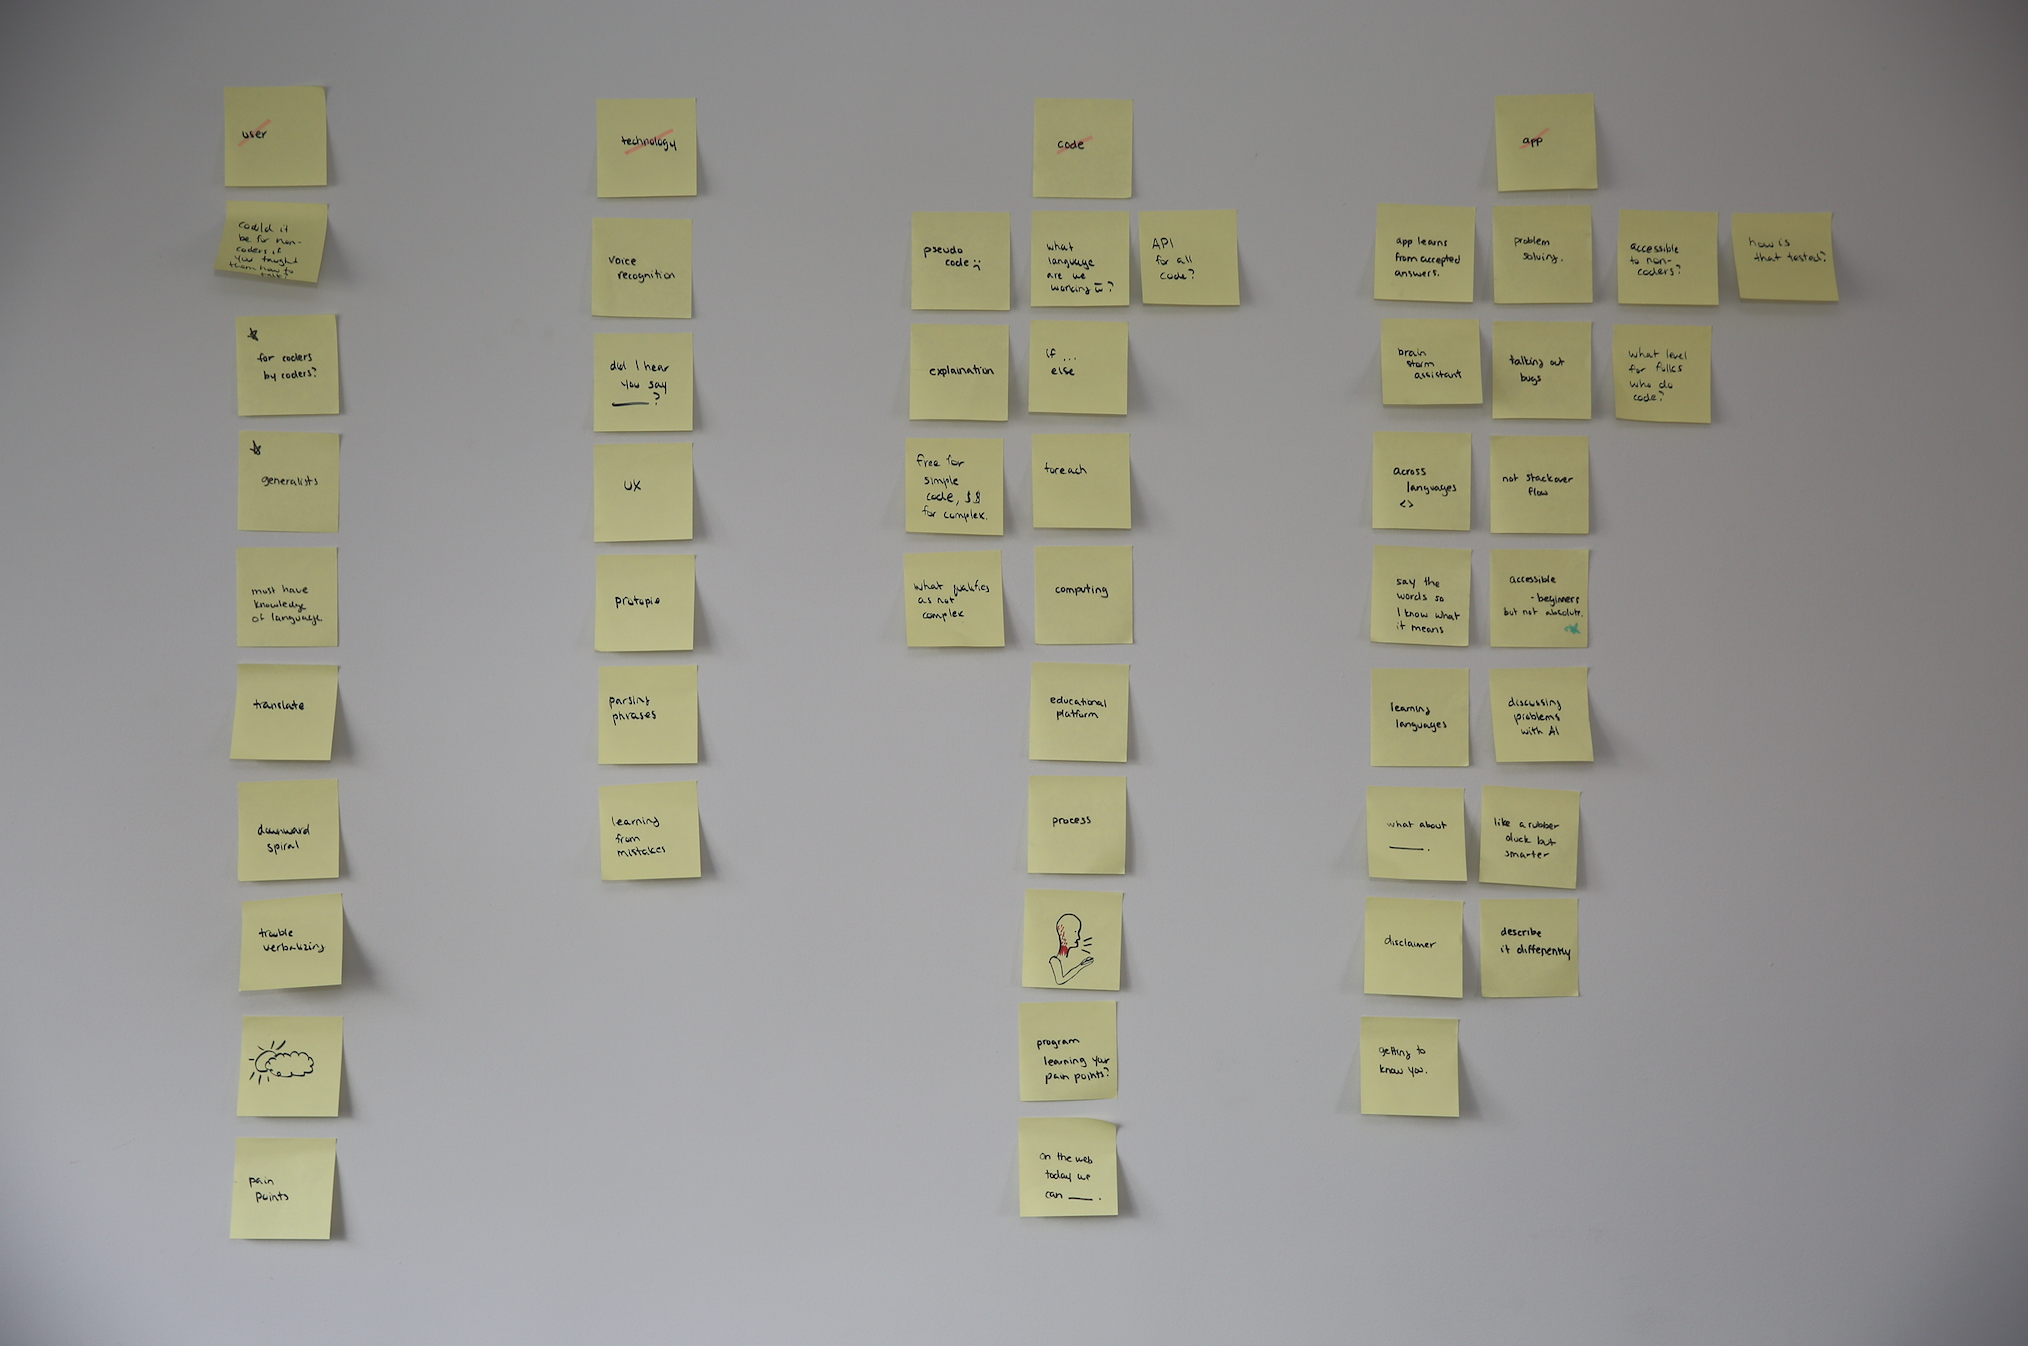 user
could it
be for non-
coders if
you taught
them how to
talk?
for coders
by coders?
generalists
must have
knowledge
of language
translate
downward
spiral
trouble
verbalizing
pain
points
technology
voice
recognition
did I hear
you say
____?
UX
protopie
parsing
phrases
learning
from
mistakes
code
pseudo
code
what
language
are we
working in?
API
for all
code?
explaination
if ...
else
free for
simple
code, $$
for complex.
foreach
what qualifies
as not
complex
computing
educational
platform
process
program
learning your
pain points?
on the web
today we
can ____.
app
app learns
from accepted
answers.
problem
solving.
accessible
to non-
coders?
how is
that tested?
brain
storm
assistant
talking out
bugs
what level
for folks
who do
code?
across
languages
<>
not stackover
flow
say the
words so
I know what
it means
accessible
- beginners
but not absolute.
learning
languages
discussing
problems
with AI
what about
____.
like a rubber
duck but
smarter
disclaimer
describe
it differently
getting to
know you.